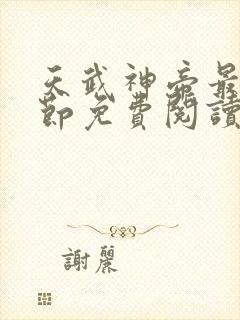 天武神帝最
節免費閱讀
謝麗